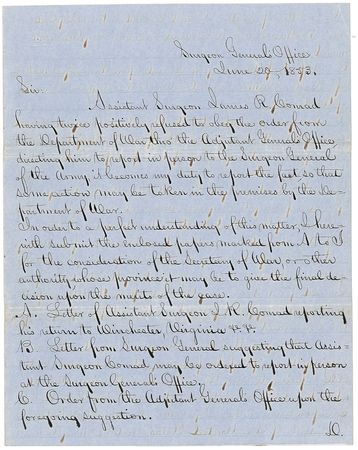 Surgeon General's Office
June 29, 1853.
Sir:
Assistant Surgeon James R. Conrad
having twice positively refused to obey the order from
the Department of War thro the Adjutant Generals Office
directing him to report in person to the Surgeon General
of the Army, it becomes my duty to report the fact so that
some action may be taken in the premises by the De-
partment of War.
In order to a perfect understanding of this matter, I here-
with submit the enclosed papers marked from A to I
for the consideration of the Secretary of War, or other
authority whose province it may be to give the final de-
cision upon the merits of the case.
A. Letter of Assistant Surgeon J. R. Conrad reporting
his return to Winchester, Virginia
B. Letter from Surgeon General suggesting that Assis-
tant Surgeon Conrad may be ordered to report in person
at the Surgeon Generals Office,
C. Order from the Adjutant Generals Office upon the
foregoing suggestion.
D.